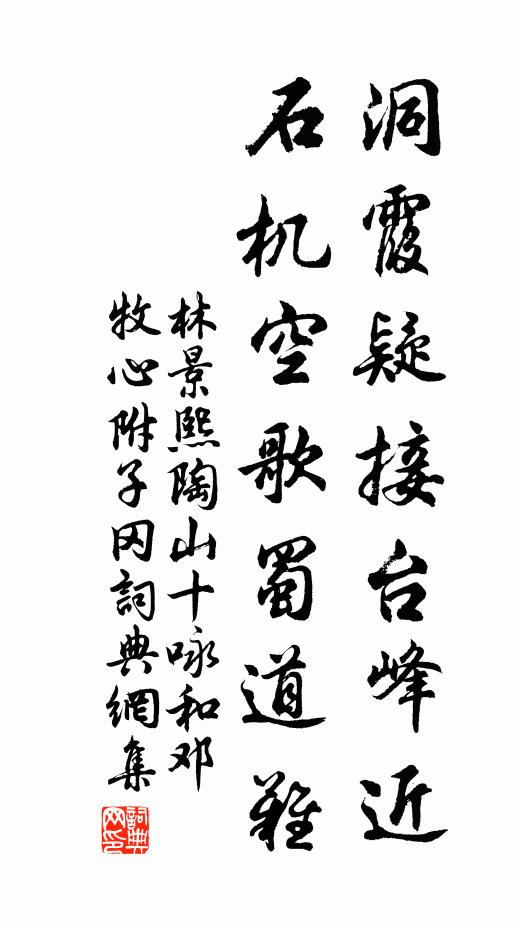 洞霞疑接台峰近
石机空歌蜀道難
林景熙陶山十咏和邓
牧心附子网詞典網集
詞典网印